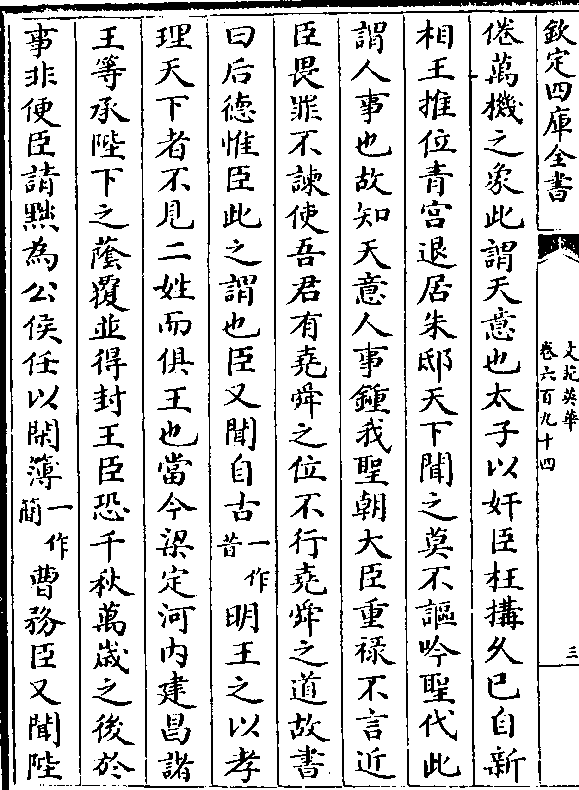 欽定四庫全書
文苑英華
卷六百九十四
三
倦萬機之象此謂天意也太子以奸臣枉搆久已自新
相王推位青宫退居朱邸天下聞之莫不謳吟聖代此
謂人事也故知天意人事鍾我聖朝大臣重禄不言近
臣畏罪不諫使吾君有堯舜之位不行堯舜之道故書
曰后德惟臣此之謂也臣又聞自古一作昔明王之以孝
理天下者不見二姓而俱王也當今梁定河内建昌諸
王等承陛下之䕃覆並得封王臣恐千秋萬歲之後於
事非便臣請黜為公侯任以閑簿一作簡曹務臣又聞陛